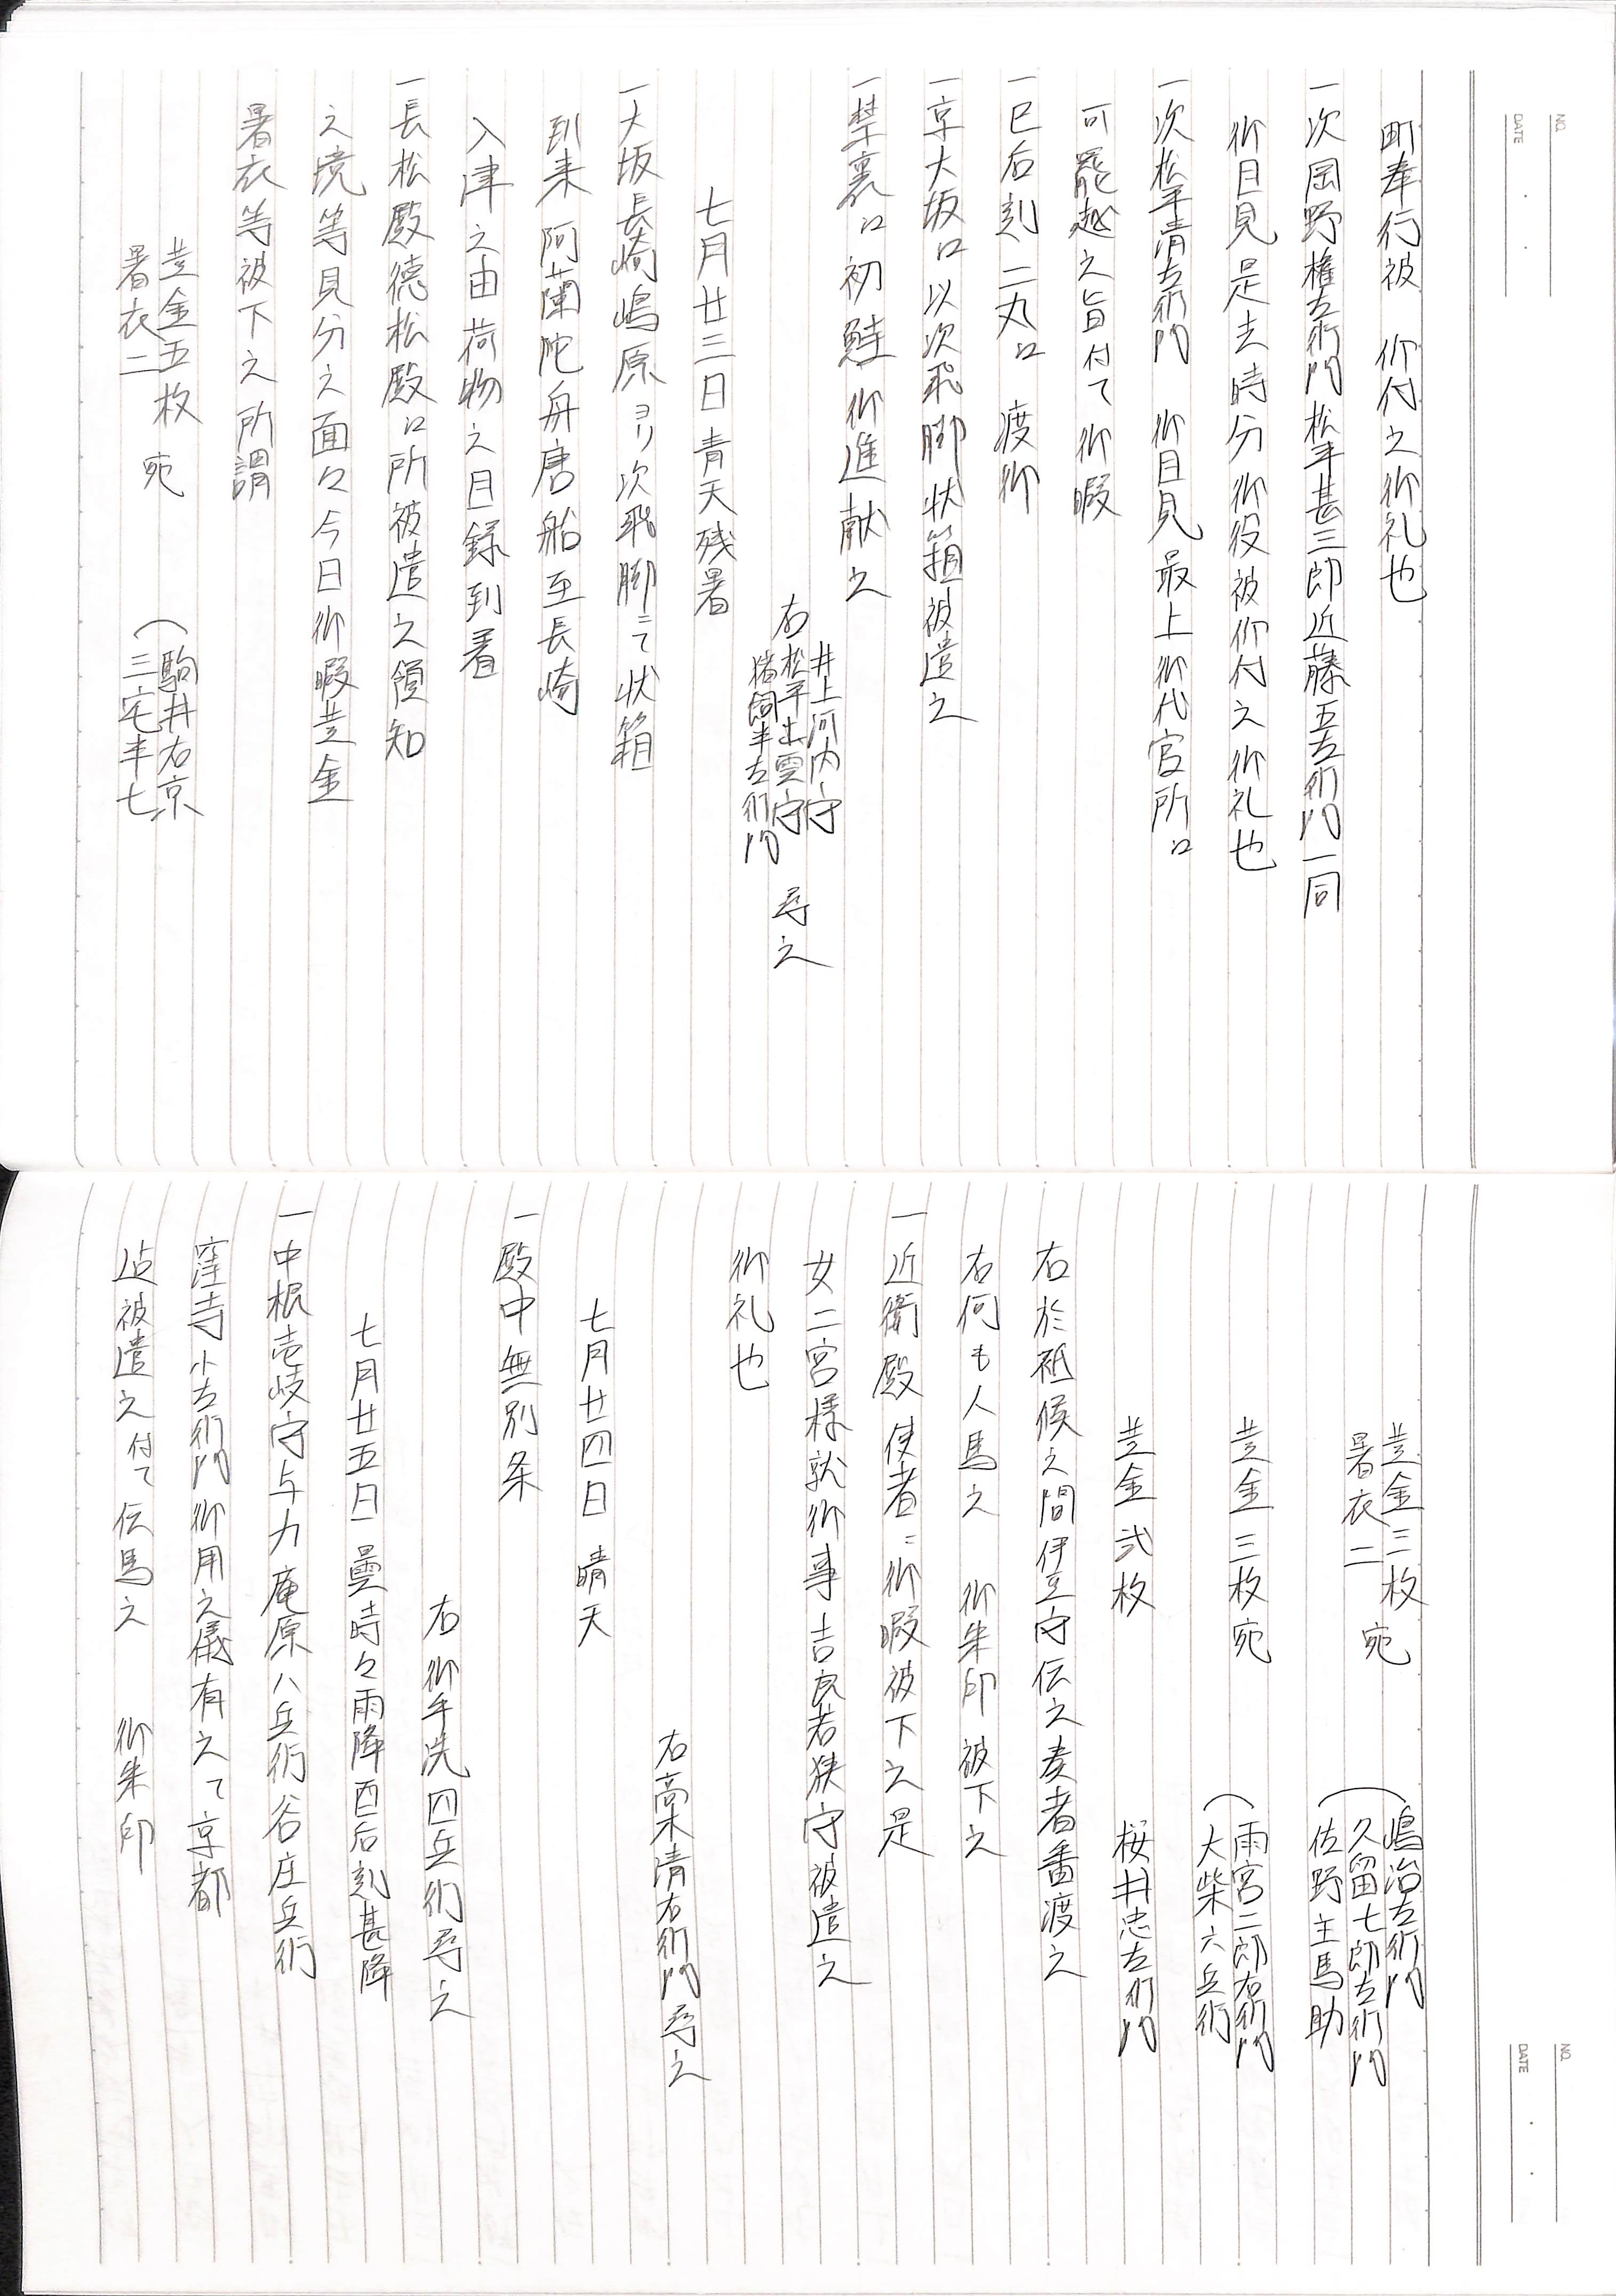 町奉行被　仰付之御礼也
一次岡野権左衛門松平甚三郎近藤五左衛門一同
御目見是去時分御役被仰付之御礼也
一次松平清左衛門　御目見最上御代官所江
可罷越之旨付て御暇
一巳后刻二丸江　渡御
一京大坂江以次飛脚状箱被遣之
一禁裏江初鮭御進献之
井上河内守
右松平出雲守　尋之
猪飼半左衛門
七月廿三日青天残暑
一大坂長崎嶋原ヨリ次飛脚ニて状箱
到来阿蘭陀舟唐船至長崎
入津之由荷物之目録到着
一長松殿徳松殿江所被遣之領知
之境等見分之面々今日御暇黄金
暑衣等被下之所謂
黄金五枚
暑衣二　宛
駒井右京
三宅半七
NO.
DATE
黄金三枚
暑衣二　宛
嶋治左衛門
久留七郎左衛門
佐野主馬助
黄金三枚宛
雨宮二郎右衛門
大柴六兵衛
黄金弐枚　桜井忠左衛門
右於祗候之間伊豆守伝之奏者番渡之
右何も人馬之　御朱印被下之
一近衛殿使者ニ御暇被下之是
女二宮様就御事吉良若狭守被遣之
御礼也
右高木清右衛門尋之
七月廿四日　晴天
一殿中無別条
右御手洗四兵衛尋之
七月廿五日曇時々雨降酉后刻甚降
一中根壱岐守与力庵原八兵衛谷庄兵衛
窪寺小左衛門御用之儀有之て京都
迠被遣之付て伝馬之　御朱印
NO.
DATE